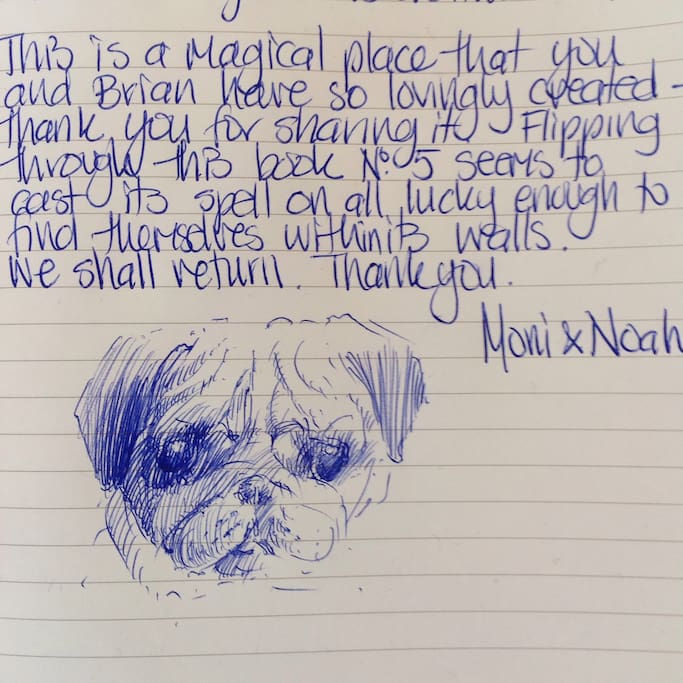 This is a magical place that you
and Brian have so lovingly created -
thank you for sharing it. Flipping
through this book Nº 5 seems to
cast its spell on all lucky enough to
find themselves within its walls.
We shall return. Thank you.
Moni & Noah